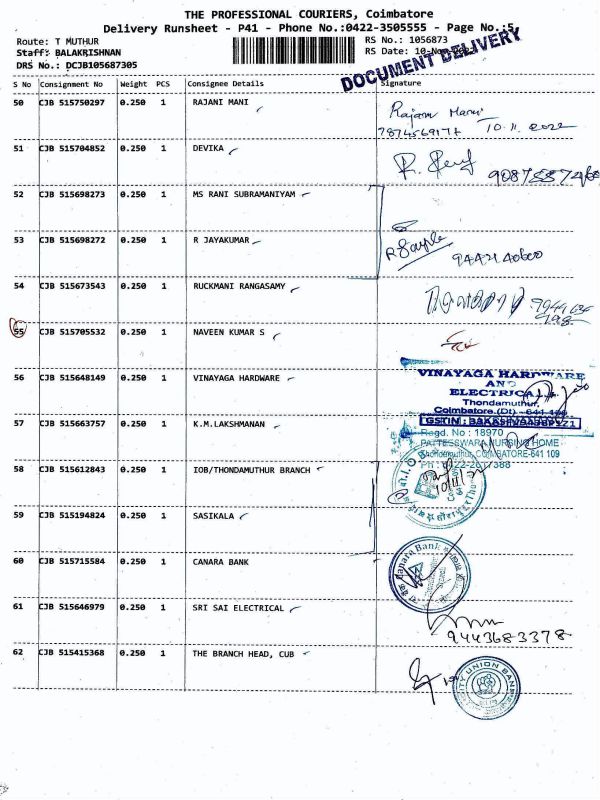 THE PROFESSIONAL COURIERS, Coimbatore
Delivery Runsheet - P41 - Phone No.:0422-3505555 - Page No.:5
Route: T MUTHUR
Staff: BALAKRISHNAN
DRS No.: DCJB105687305
RS No.: 1056873
RS Date: 10-Nov-2022
DOCUMENT DELIVERY
S No Consignment No Weight PCS Consignee Details Signature
50 CJB 515750297 0.250 1 RAJANI MANI
Rajani Mani
10.11.2022
51 CJB 515704852 0.250 1 DEVIKA
52 CJB 515698273 0.250 1 MS RANI SUBRAMANIYAM
53 CJB 515698272 0.250 1 R JAYAKUMAR
54 CJB 515673543 0.250 1 RUCKMANI RANGASAMY
55 CJB 515705532 0.250 1 NAVEEN KUMAR S
56 CJB 515648149 0.250 1 VINAYAGA HARDWARE
VINAYAGA HARDWARE
AND
ELECTRICALS
Thondamuthur,
Coimbatore.(Dt) - 641 109
57 CJB 515663757 0.250 1 K.M.LAKSHMANAN
Regd. No : 18970
PATTESSWARA NURSING HOME
Thondamuthur, COIMBATORE-641 109
58 CJB 515612843 0.250 1 IOB/THONDAMUTHUR BRANCH
59 CJB 515194824 0.250 1 SASIKALA
60 CJB 515715584 0.250 1 CANARA BANK
Canara Bank
61 CJB 515646979 0.250 1 SRI SAI ELECTRICAL
9443683378
62 CJB 515415368 0.250 1 THE BRANCH HEAD, CUB
CITY UNION BANK